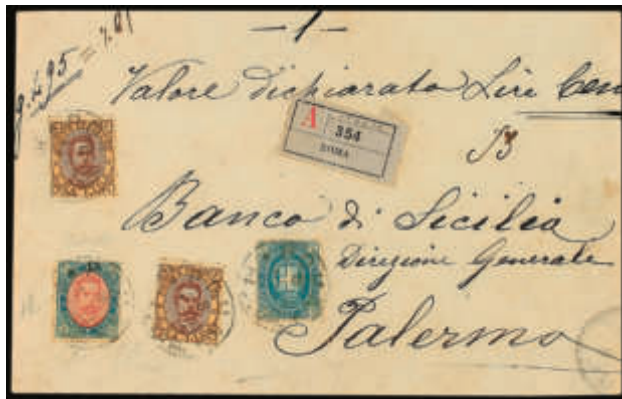 —1—
Valore dichiarato Lire Cen
A
354
ROMA
Banco di Sicilia
Direzione Generale
Palermo